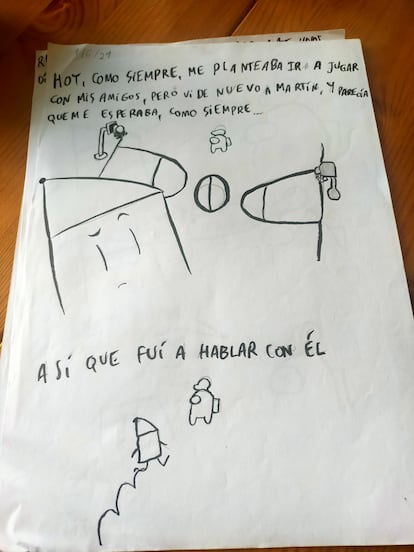 HOY, COMO SIEMPRE, ME PLANTEABA IR A JUGAR
CON MIS AMIGOS, PERO VI DE NUEVO A MARTÍN, Y PARECÍA
QUE ME ESPERABA, COMO SIEMPRE...
ASÍ QUE FUÍ A HABLAR CON ÉL